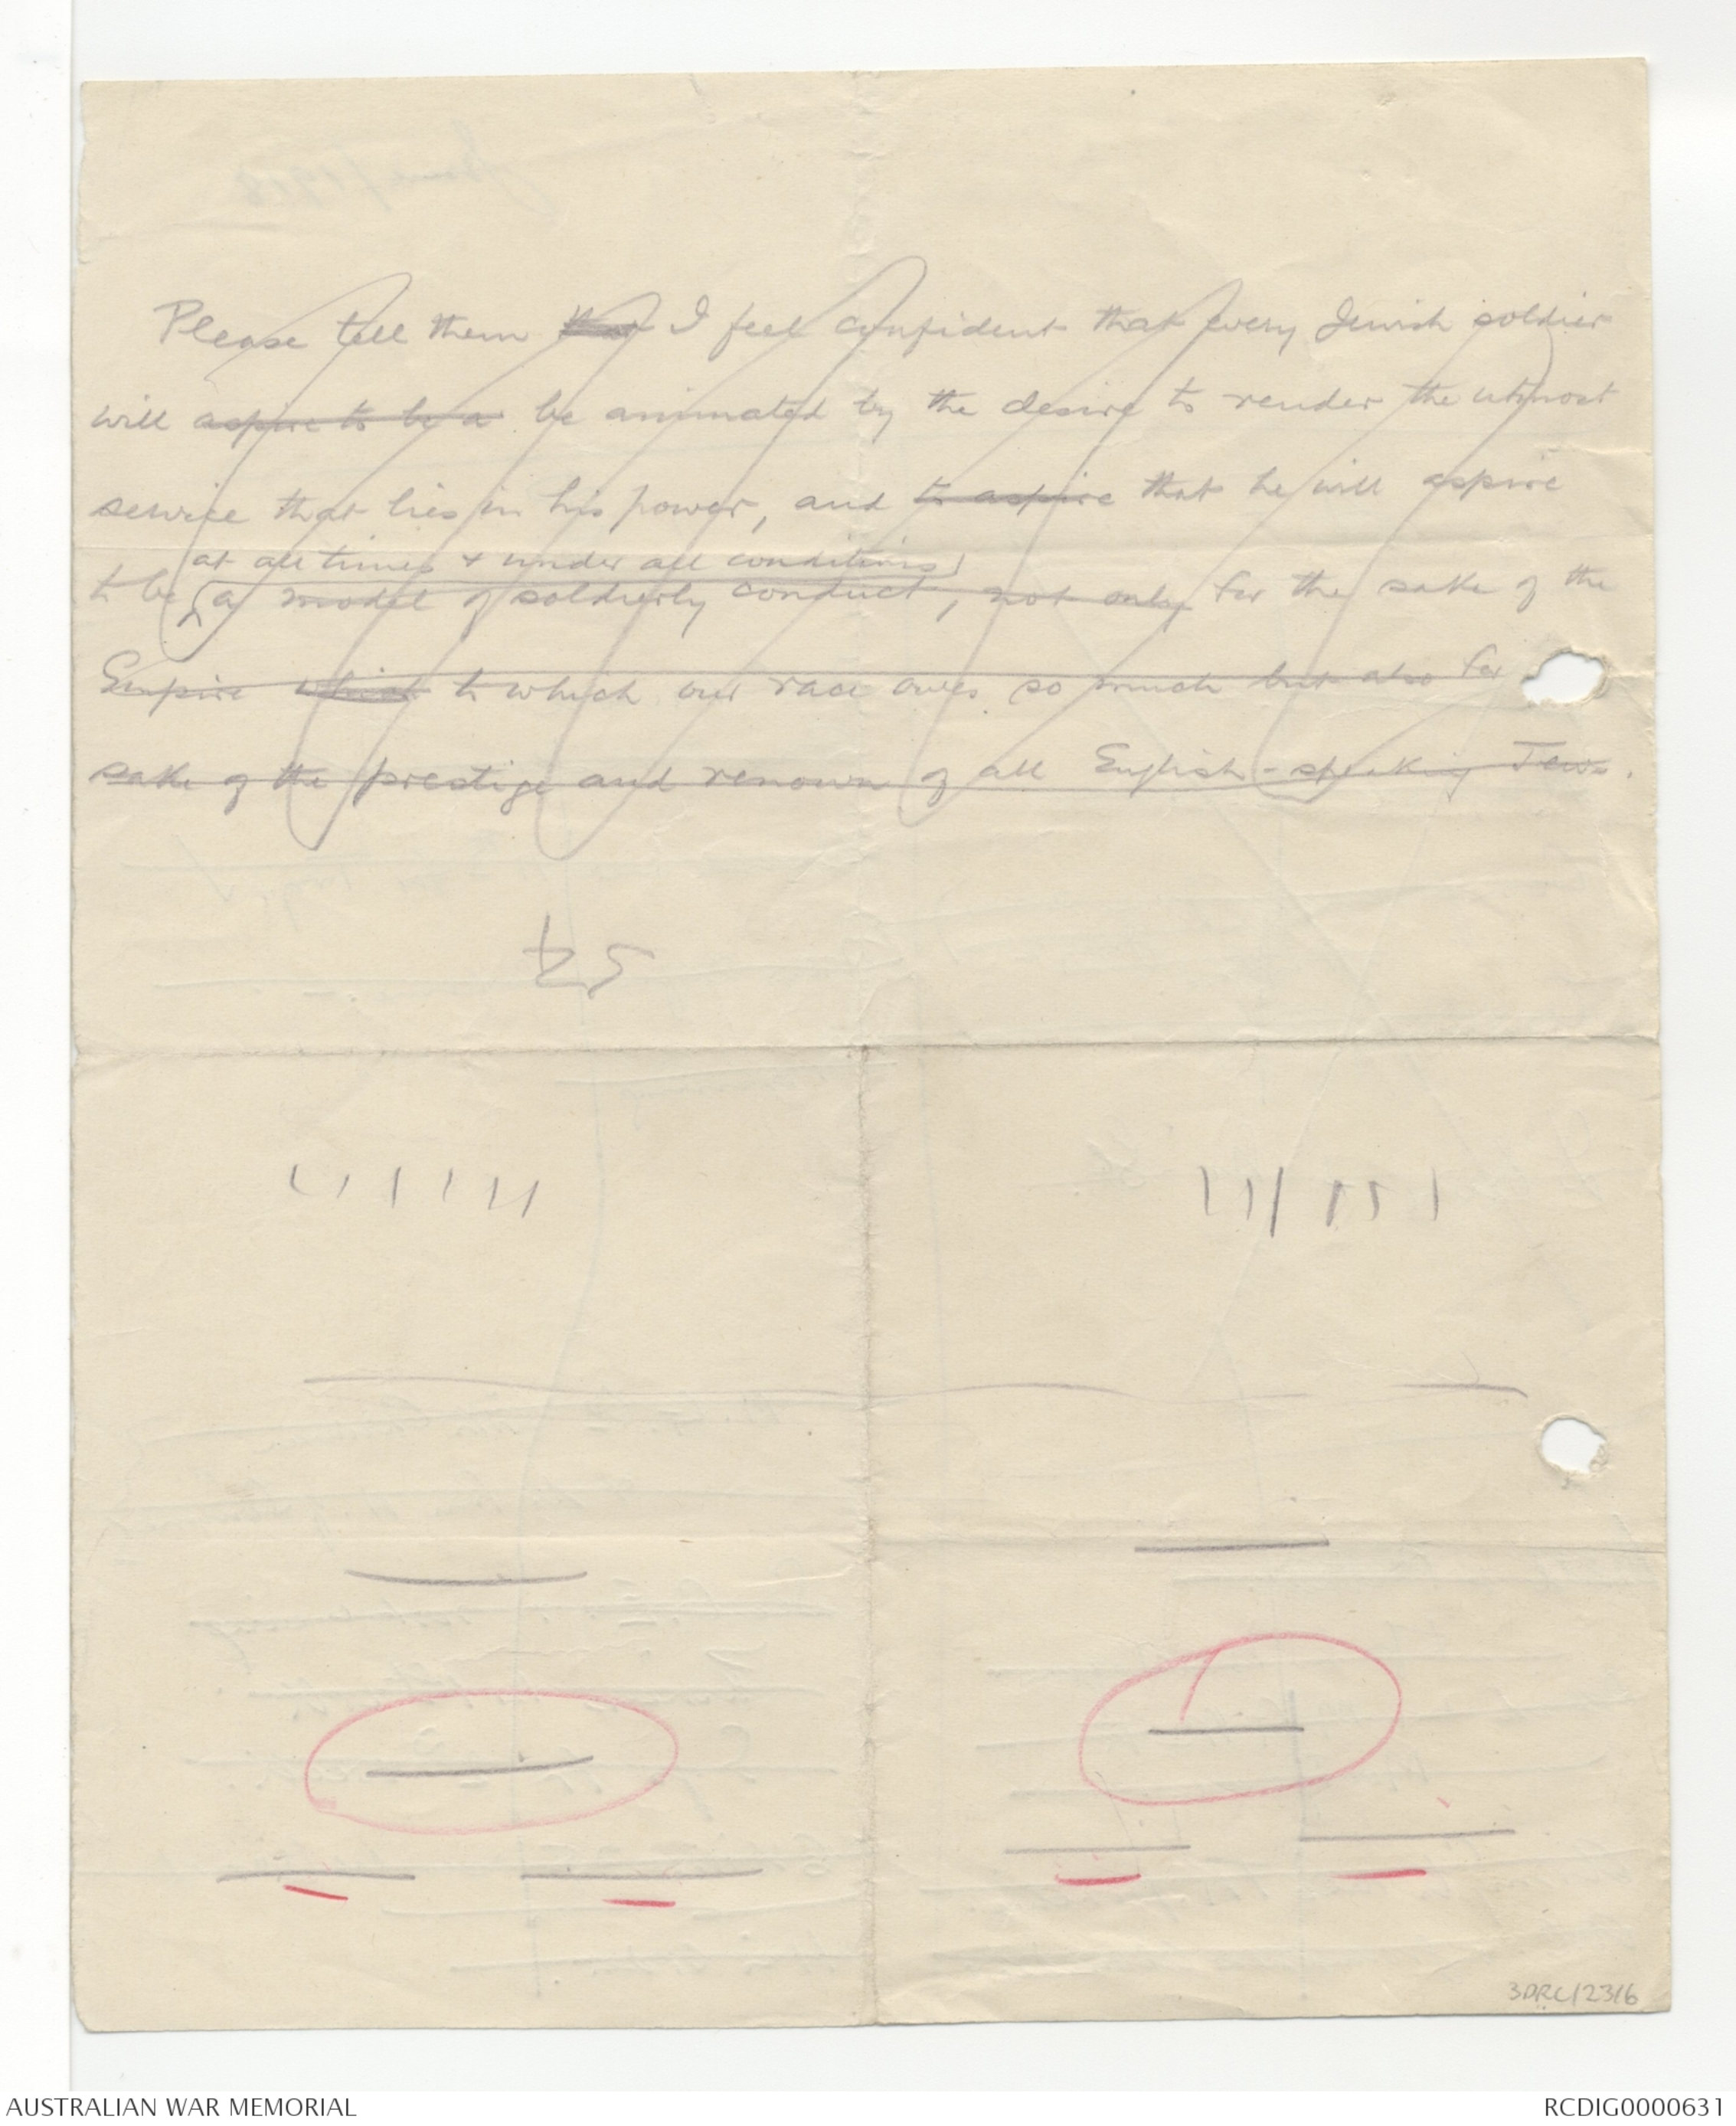 Please tell them that I feel confident that every Jewish soldier
will aspire to be a be animated by the desire to render the utmost
service that lies in his power, and to aspire that he will aspire
at all times & under all conditions
to be a model of soldierly conduct, not only for the sake of the
Empire which to which our race owes so much but also for
sake of the prestige and renown of all English-speaking Jews.
3DRL/2316
AUSTRALIAN WAR MEMORIAL
RCDIG0000631